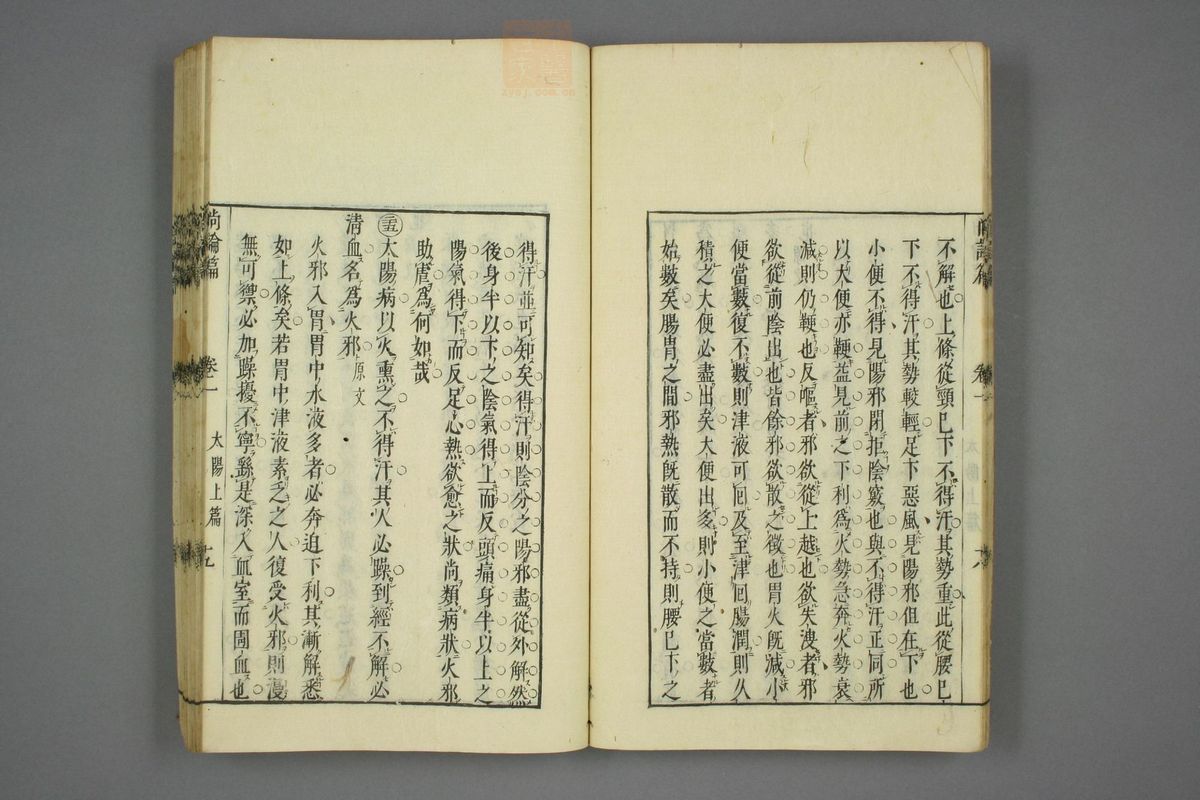 不解也上條從頸已下不得汗其勢重此從腰已
下不得汗其勢較輕足下惡風見陽邪但在下也
小便不得見陽邪閉拒陰竅也與不得汗正同所
以大便亦鞕葢見前之下利爲火勢急奔火勢衰
減則仍鞕也反嘔者邪欲從上越也欲失溲者邪
欲從前陰出也皆餘邪欲散之徵也胃火旣減小
便當數復不數則津液可回及至津回腸潤則久
積之大便必盡出矣大便出多則小便之當數者
始數矣腸胃之間邪熱旣散而不持則腰已下之
得汗並可知矣得汗則陰分之陽邪盡從外解然
後身半以下之陰氣得上而反頭痛身半以上之
陽氣得下而反足心熱欲愈之狀尚類病狀火邪
助虐爲何如哉
太陽病以火熏之不得汗其人必躁到經不解必
清血名爲火邪 原文
火邪入胃胃中水液多者必奔迫下利其漸解悉
如上條矣若胃中津液素乏之人復受火邪則漫
無可禦必加躁擾不寧繇是深入血室而圊血也
尚論篇 卷一 太陽上篇
zyoj.com.cn